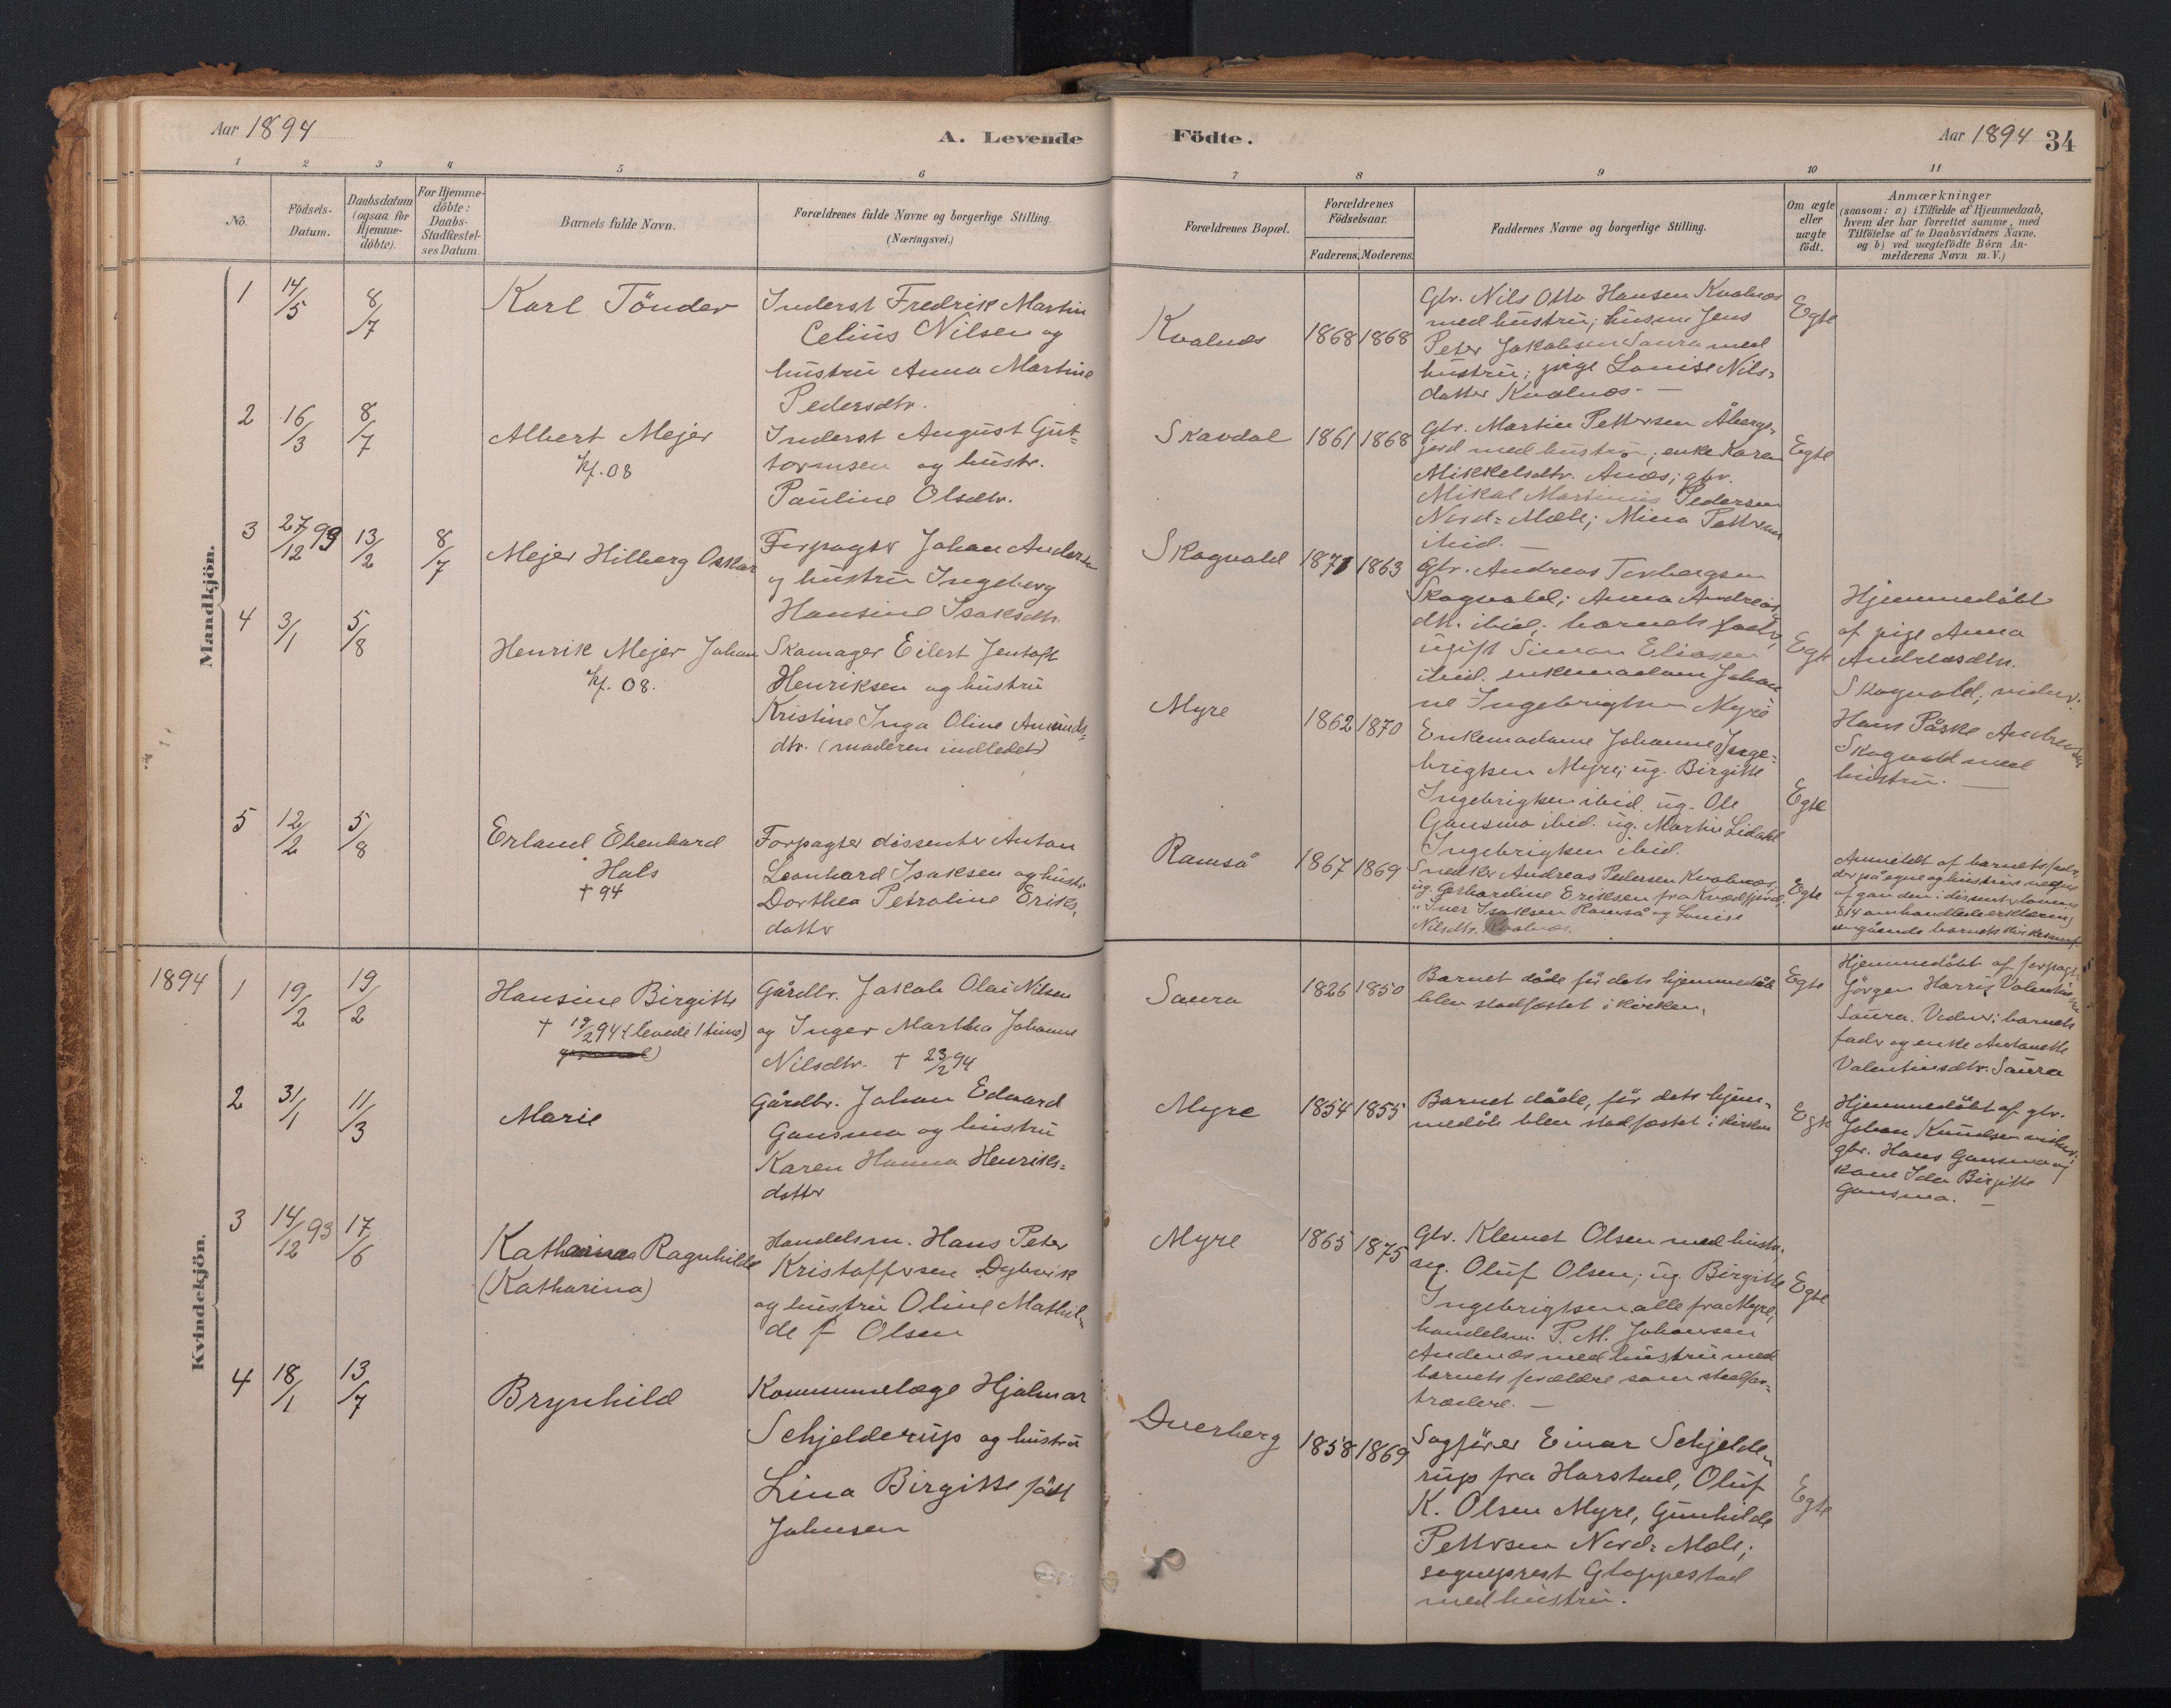 Aar 1894
A. Levende
1
2
3
4
5
6
No.
Födsels-
Datum.
Daabsdatum
(ogsaa for
Hjemme-
döbte).
For Hjemme-
döbte:
Daabs-
Stadfæstel-
ses Datum.
Barnets fulde Navn.
Forældrenes fulde Navne og borgerlige Stilling.
(Næringsvei.)
Mandkjön.
1
14/5
8/7
Karl Tönder
Inderst Fredrik Martin
Celius Nilsen og
hustru Anna Martine
Pedersdtr.
2
16/3
8/7
Albert Mejer
kf. 08
Inderst August Gut=
tormsen og hustr.
Pauline Olsdtr.
3
27/12 93
13/2
8/7
Mejer Hilberg Oskar
Forpagtr Johan Andersen
og hustru Ingeborg
Hansine Isaksdtr.
4
3/1
5/8
Henrik Mejer Johan
kf. 08.
Skomager Eilert Jentoft
Henriksen og hustru
Kristine Inga Oline Amunds=
dtr. (moderen indledet)
5
12/2
5/8
Erland Ebenhard
Hals
† 94
Forpagter dissenter Anton
Leonhard Isaksen og hustr
Dorthea Petroline Eriks,
dattr
1894
Kvindekjön.
1
19/2
19/2
Hansine Birgitte
† 19/2 94 (levede 1 time)
Gårdbr. Jakob Olai Nilsen
og Inger Martha Johanne
Nilsdtr. † 23/2 94
2
31/1
11/3
Marie
Gårdbr. Johan Edvard
Gansmo og hustru
Karen Hanna Henriks=
dattr
3
14/12 93
17/6
Katharina Ragnhilde
(Katharina)
Handelsm. Hans Peter
Kristoffersen Dybvik
og hustru Oline Mathil=
de f. Olsen
4
18/1
13/7
Brynhild
Kommunelæge Hjalmar
Schjelderup og hustru
Lina Birgitte född
Johnsen
Födte.
Aar 1894
34
7
8
9
10
11
Forældrenes Bopæl.
Forældrenes
Födselsaar.
Faderens.
Moderens.
Faddernes Navne og borgerlige Stilling.
Om ægte
eller
uægte
födt.
Anmærkninger
(saasom: a) i Tilfælde af Hjemmedaab,
hvem der har forrettet samme, med
Tilföielse af to Daabsvidners Navne,
og b) ved uægtefödte Börn An-
melderens Navn m. V.)
Kvalnæs
1868
1868
Gbr. Nils Otto Hansen Kvalnæs
med hustru; husm. Jens
Peter Jakobsen Saura med
hustru; pige Louise Nils=
datter Kvalnæs. —
Egte
Skavdal
1861
1868
Gbr. Martin Pettersen Åbergs=
jord med hustru; enke Karen
Mikkelsdtr. Anæs; gbr.
Mikal Martinius Pedersen
Nord=Mæle; Mina Pettersen
ibid. —
Egte
Skogvold
1871
1863
Gbr. Andreas Torbergsen
Skogvold; Anna Andreas
dtr. ibid; barnets fader,
ugift Simon Eliasen
ibid. enkemadam Johan
ne Ingebrigtsen Myre
Egte
Hjemmedöbt
af pige Anna
Andreasdtr.
Skogvold; vidner:
Hans Påske Andreassen
Skogvold med
hustru. —
Myre
1862
1870
Enkemadame Johanne Inge=
brigtsen Myre; ug. Birgitte
Ingebrigtsen ibid. ug. Ole
Gansmo ibid. ug. Martin Lidahl
Ingebrigtsen ibid.
Egte
Ramså
1867
1869
Snedker Andreas Pedersen Kvalnæs,
ug. Gerhardine Eriksen fra Kvædfjord,
" Iver Isaksen Ramså og Louise
Nilsdtr. Kvalnæs.
Egte
Anmeldt af barnets fader,
der på egne og hustrus vegne
afgav den i dissenterlovens
§14 omhandlede erklæring
angående barnets
Saura
1826
1850
Barnet döde för dets hjemmedåb
blev stadfæstet i kirken.
Egte
Hjemmedöbt af forpagtr
Jörgen Harris Valentinsen
Saura. Vidner: barnets
fader og enke Antonette
Valentinsdtr. Saura
Myre
1854
1855
Barnet döde, för dets hjem=
medåb blev stadfæstet i kirken
Egte
Hjemmedöbt af gbr.
Johan Knudsen vidner:
gbr. Hans Gansmo og
kone Ida Birgitte
Gansmo. —
Myre
1865
1875
Gbr. Klemet Olsen med hustr.
ug. Oluf Olsen; ug. Birgitte
Ingebrigtsen alle fra Myre;
handelsm. P. M. Johansen
Andenæs med hustru med
barnets forældre som stedfor=
trædere. —
Egte
Dverberg
1858
1869
Sagförer Einar Schjelde=
rup fra Harstad, Oluf
K. Olsen Myre, Gunhilde
Pettersen Nord=Mæle;
sogneprest Gloppestad
med hustru.
Egte